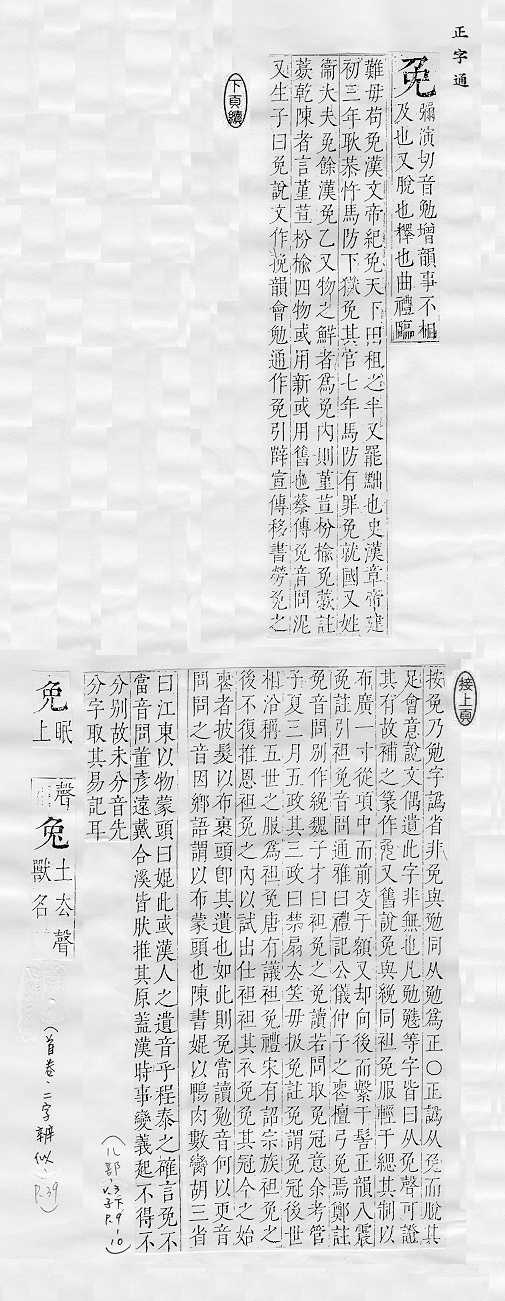 正字通
免 彌演切音勉增韻事不相
及也又脫也釋也曲禮臨
難毋苟免漢文帝紀免天下田租之半又罷黜也史漢章帝建
初三年耿恭忤馬防下獄免其官七年馬防有罪免就國又姓
衞大夫免餘漢免乙又物之鮮者爲免內則堇荁枌榆免薧註
薧乾陳者言堇荁枌榆四物或用新或用舊也蔡傳免音問泥
又生子曰免說文作㝃韻會勉通作免引薛宣傳移書勞免之
下頁續
接上頁
按免乃勉字譌省非免與勉同从勉爲正○正譌从兔而脫其
足會意說文偶遺此字非無也凡勉等字皆曰从免聲可證
其有故補之篆作又舊說免與絻同袒免服輕于緦其制以
布廣一寸從項中而前交于額又却向後而繫于髻正韻八震
免註引袒免音問通雅曰禮記公儀仲子之喪檀弓免焉鄭註
免音問別作絻魏子才曰袒免之免讀若問取免冠意余考管
子夏三月五政其三政曰禁扇去笠毋扱免註免謂免冠後世
相沿稱五世之服爲袒免唐有議袒免禮宋有詔宗族袒免之
後不復推恩袒免之內以試出仕袒袒其衣免免其冠今之始
喪者披髮以布裹頭卽其遺也如此則免當讀勉音何以更音
問問之音因鄉語謂以布蒙頭也陳書娓以鴨肉數臠胡三省
曰江東以物蒙頭曰娓此或漢人之遺音乎程泰之確言免不
當音問董彥遠戴合溪皆肤推其原蓋漢時事變義起不得不
分別故未分音先
分字取其易記耳
(儿部、子下、P.9-10)
免 眠上聲
兔 土去聲 獸名
(首卷、二字辨似、P.39)